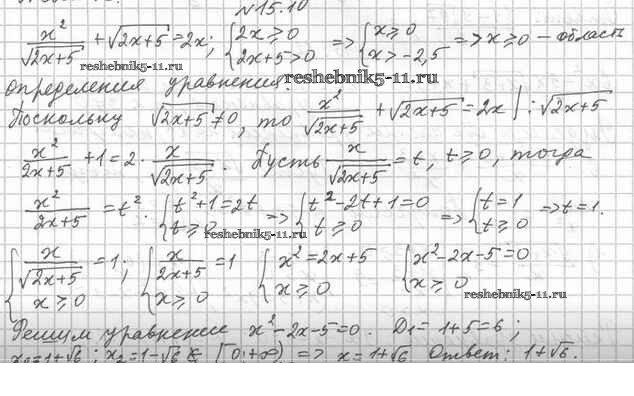 №15.10
x²/√(2x+5) + √(2x+5) = 2x; {2x ≥ 0, 2x+5 > 0 => {x ≥ 0, x > -2,5 => x ≥ 0 – область
reshebnik5-11.ru
определения уравнения.
reshebnik5-11.ru
Поскольку √(2x+5) ≠ 0, то x²/√(2x+5) + √(2x+5) = 2x | : √(2x+5)
x²/(2x+5) + 1 = 2 · x/√(2x+5). Пусть x/√(2x+5) = t, t ≥ 0, тогда
x²/(2x+5) = t². {t²+1=2t, t ≥ 0 => {t²-2t+1=0, t ≥ 0 => {t=1, t ≥ 0 => t=1.
reshebnik5-11.ru
{x/√(2x+5) = 1, x ≥ 0; {x/(2x+5) = 1, x ≥ 0 {x² = 2x+5, x ≥ 0 {x²-2x-5=0, x ≥ 0
reshebnik5-11.ru
Решим уравнение x²-2x-5=0. D₁=1+5=6;
x₁=1+√6; x₂=1-√6 ∉ [0;+∞) => x=1+√6 Ответ: 1+√6.